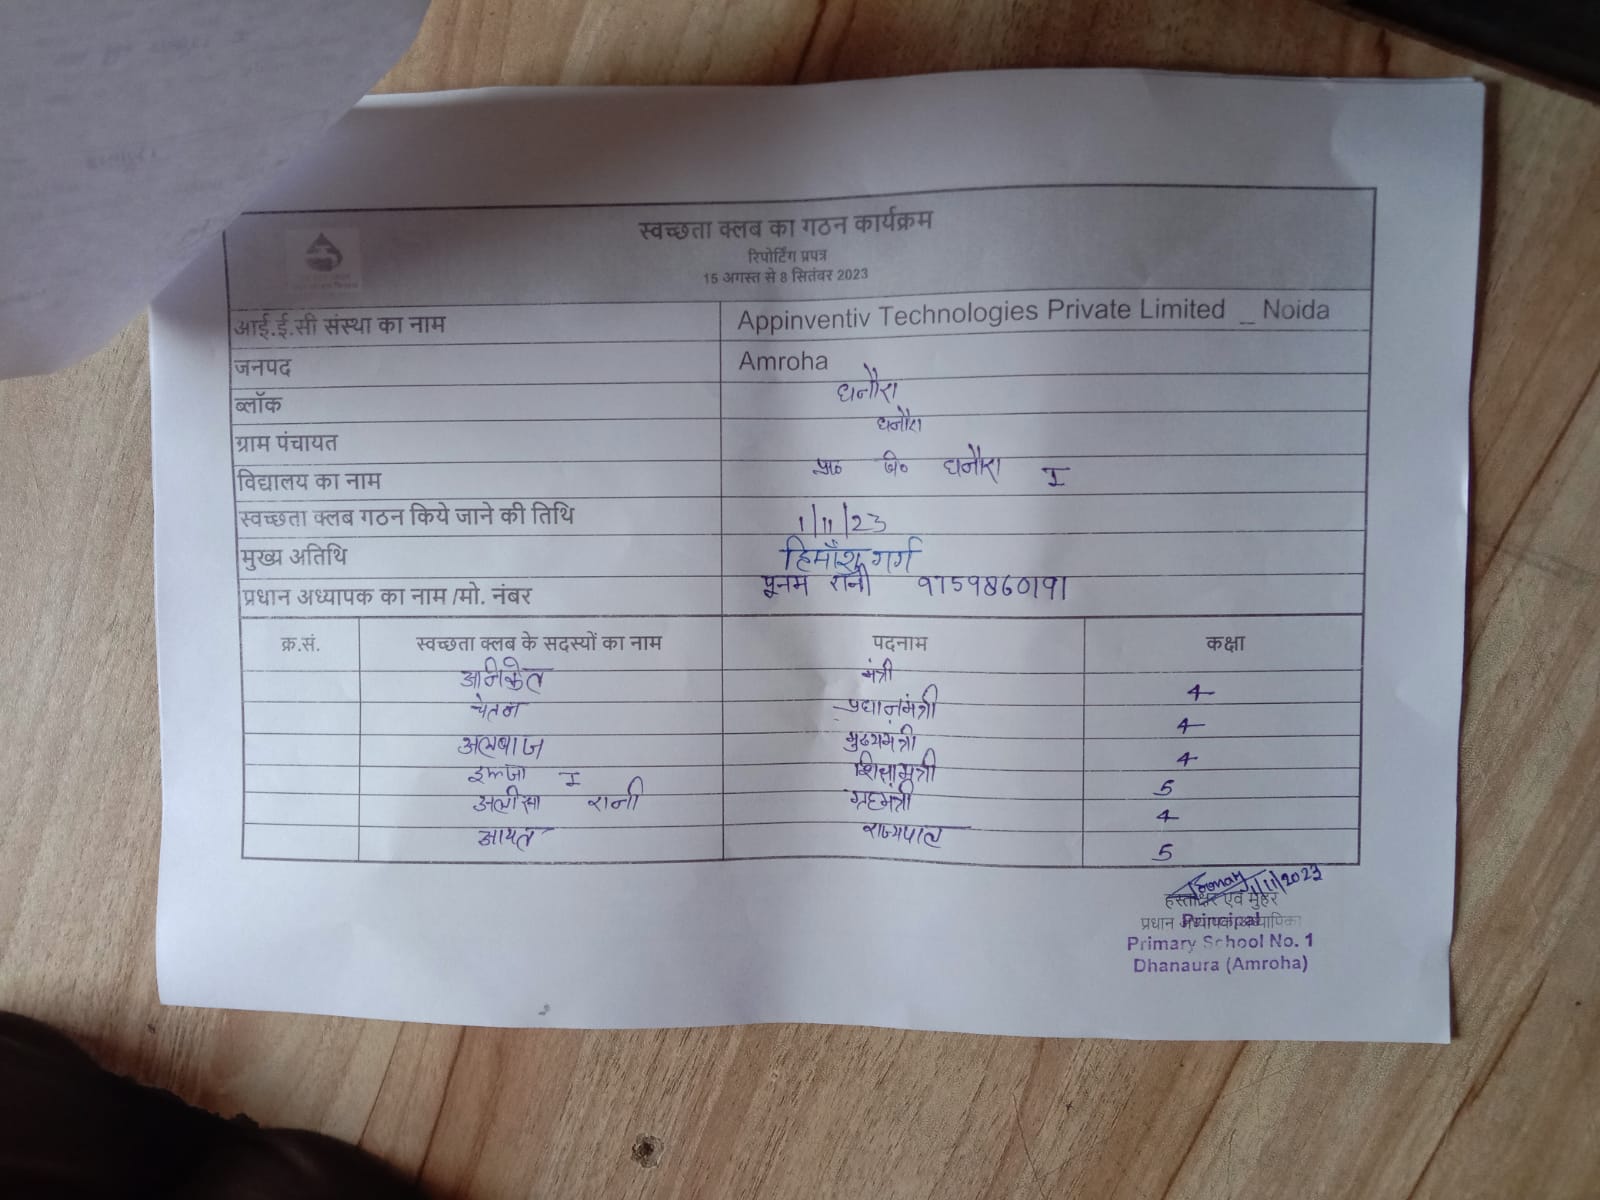 स्वच्छता क्लब का गठन कार्यक्रम
रिपोर्टिंग प्रपत्र
15 अगस्त से 8 सितंबर 2023
आई.ई.सी संस्था का नाम Appinventiv Technologies Private Limited _ Noida
जनपद Amroha
ब्लॉक धनौरा
ग्राम पंचायत धनौरा
विद्यालय का नाम प्रा० वि० धनौरा I
स्वच्छता क्लब गठन किये जाने की तिथि 1/11/23
मुख्य अतिथि हिमाँशु गर्ग
प्रधान अध्यापक का नाम /मो. नंबर पूनम रानी 9759860191
क्र.सं. स्वच्छता क्लब के सदस्यों का नाम पदनाम कक्षा
अनिकेत मंत्री 4
चेतन प्रधानमंत्री 4
अलबाज मुख्यमंत्री 4
इल्जा I शिक्षामंत्री 5
अलीसा रानी ग्रहमंत्री 4
आयत राज्यपाल 5
1/11/2023
हस्ताक्षर एवं मुहर
प्रधान
Principal
Primary School No. 1
Dhanaura (Amroha)